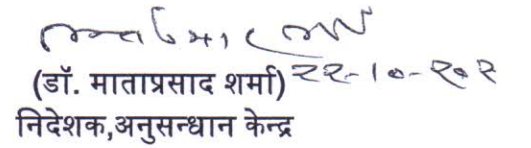 (डॉ. माताप्रसाद शर्मा) २२-१०-२०२
निदेशक,अनुसन्धान केन्द्र